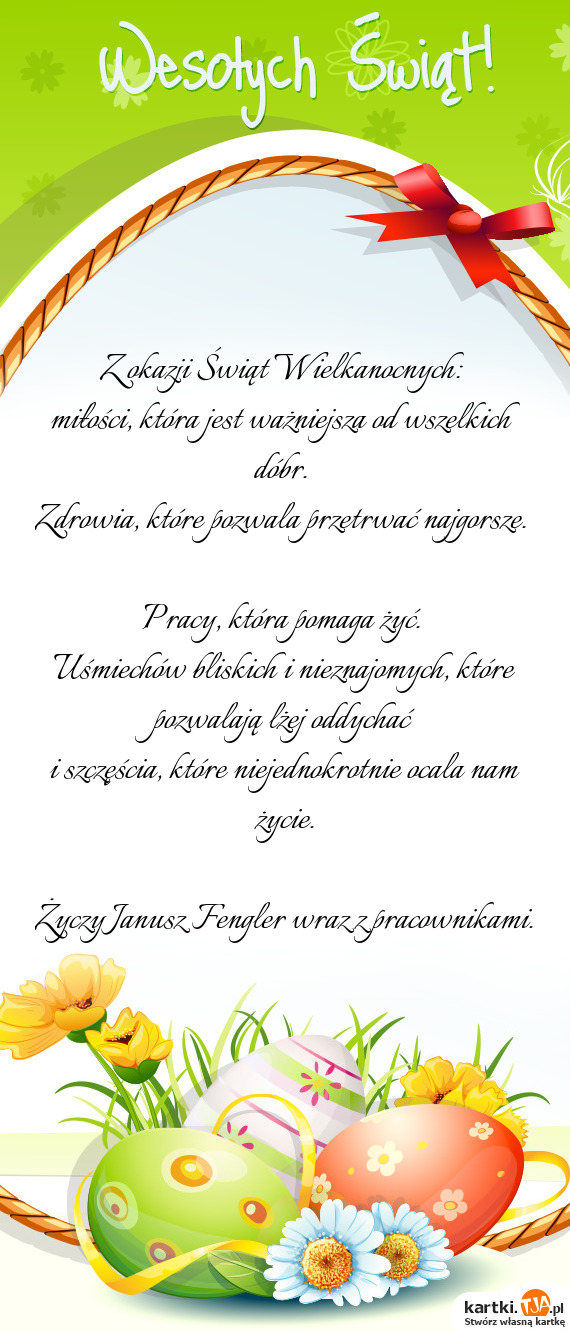 Wesołych Świąt!
Z okazji Świąt Wielkanocnych:
miłości, która jest ważniejsza od wszelkich
dóbr.
Zdrowia, które pozwala przetrwać najgorsze.
Pracy, która pomaga żyć.
Uśmiechów bliskich i nieznajomych, które
pozwalają lżej oddychać
i szczęścia, które niejednokrotnie ocala nam
życie.
Życzy Janusz Fengler wraz z pracownikami.
kartki.TJA.pl
Stwórz własną kartkę